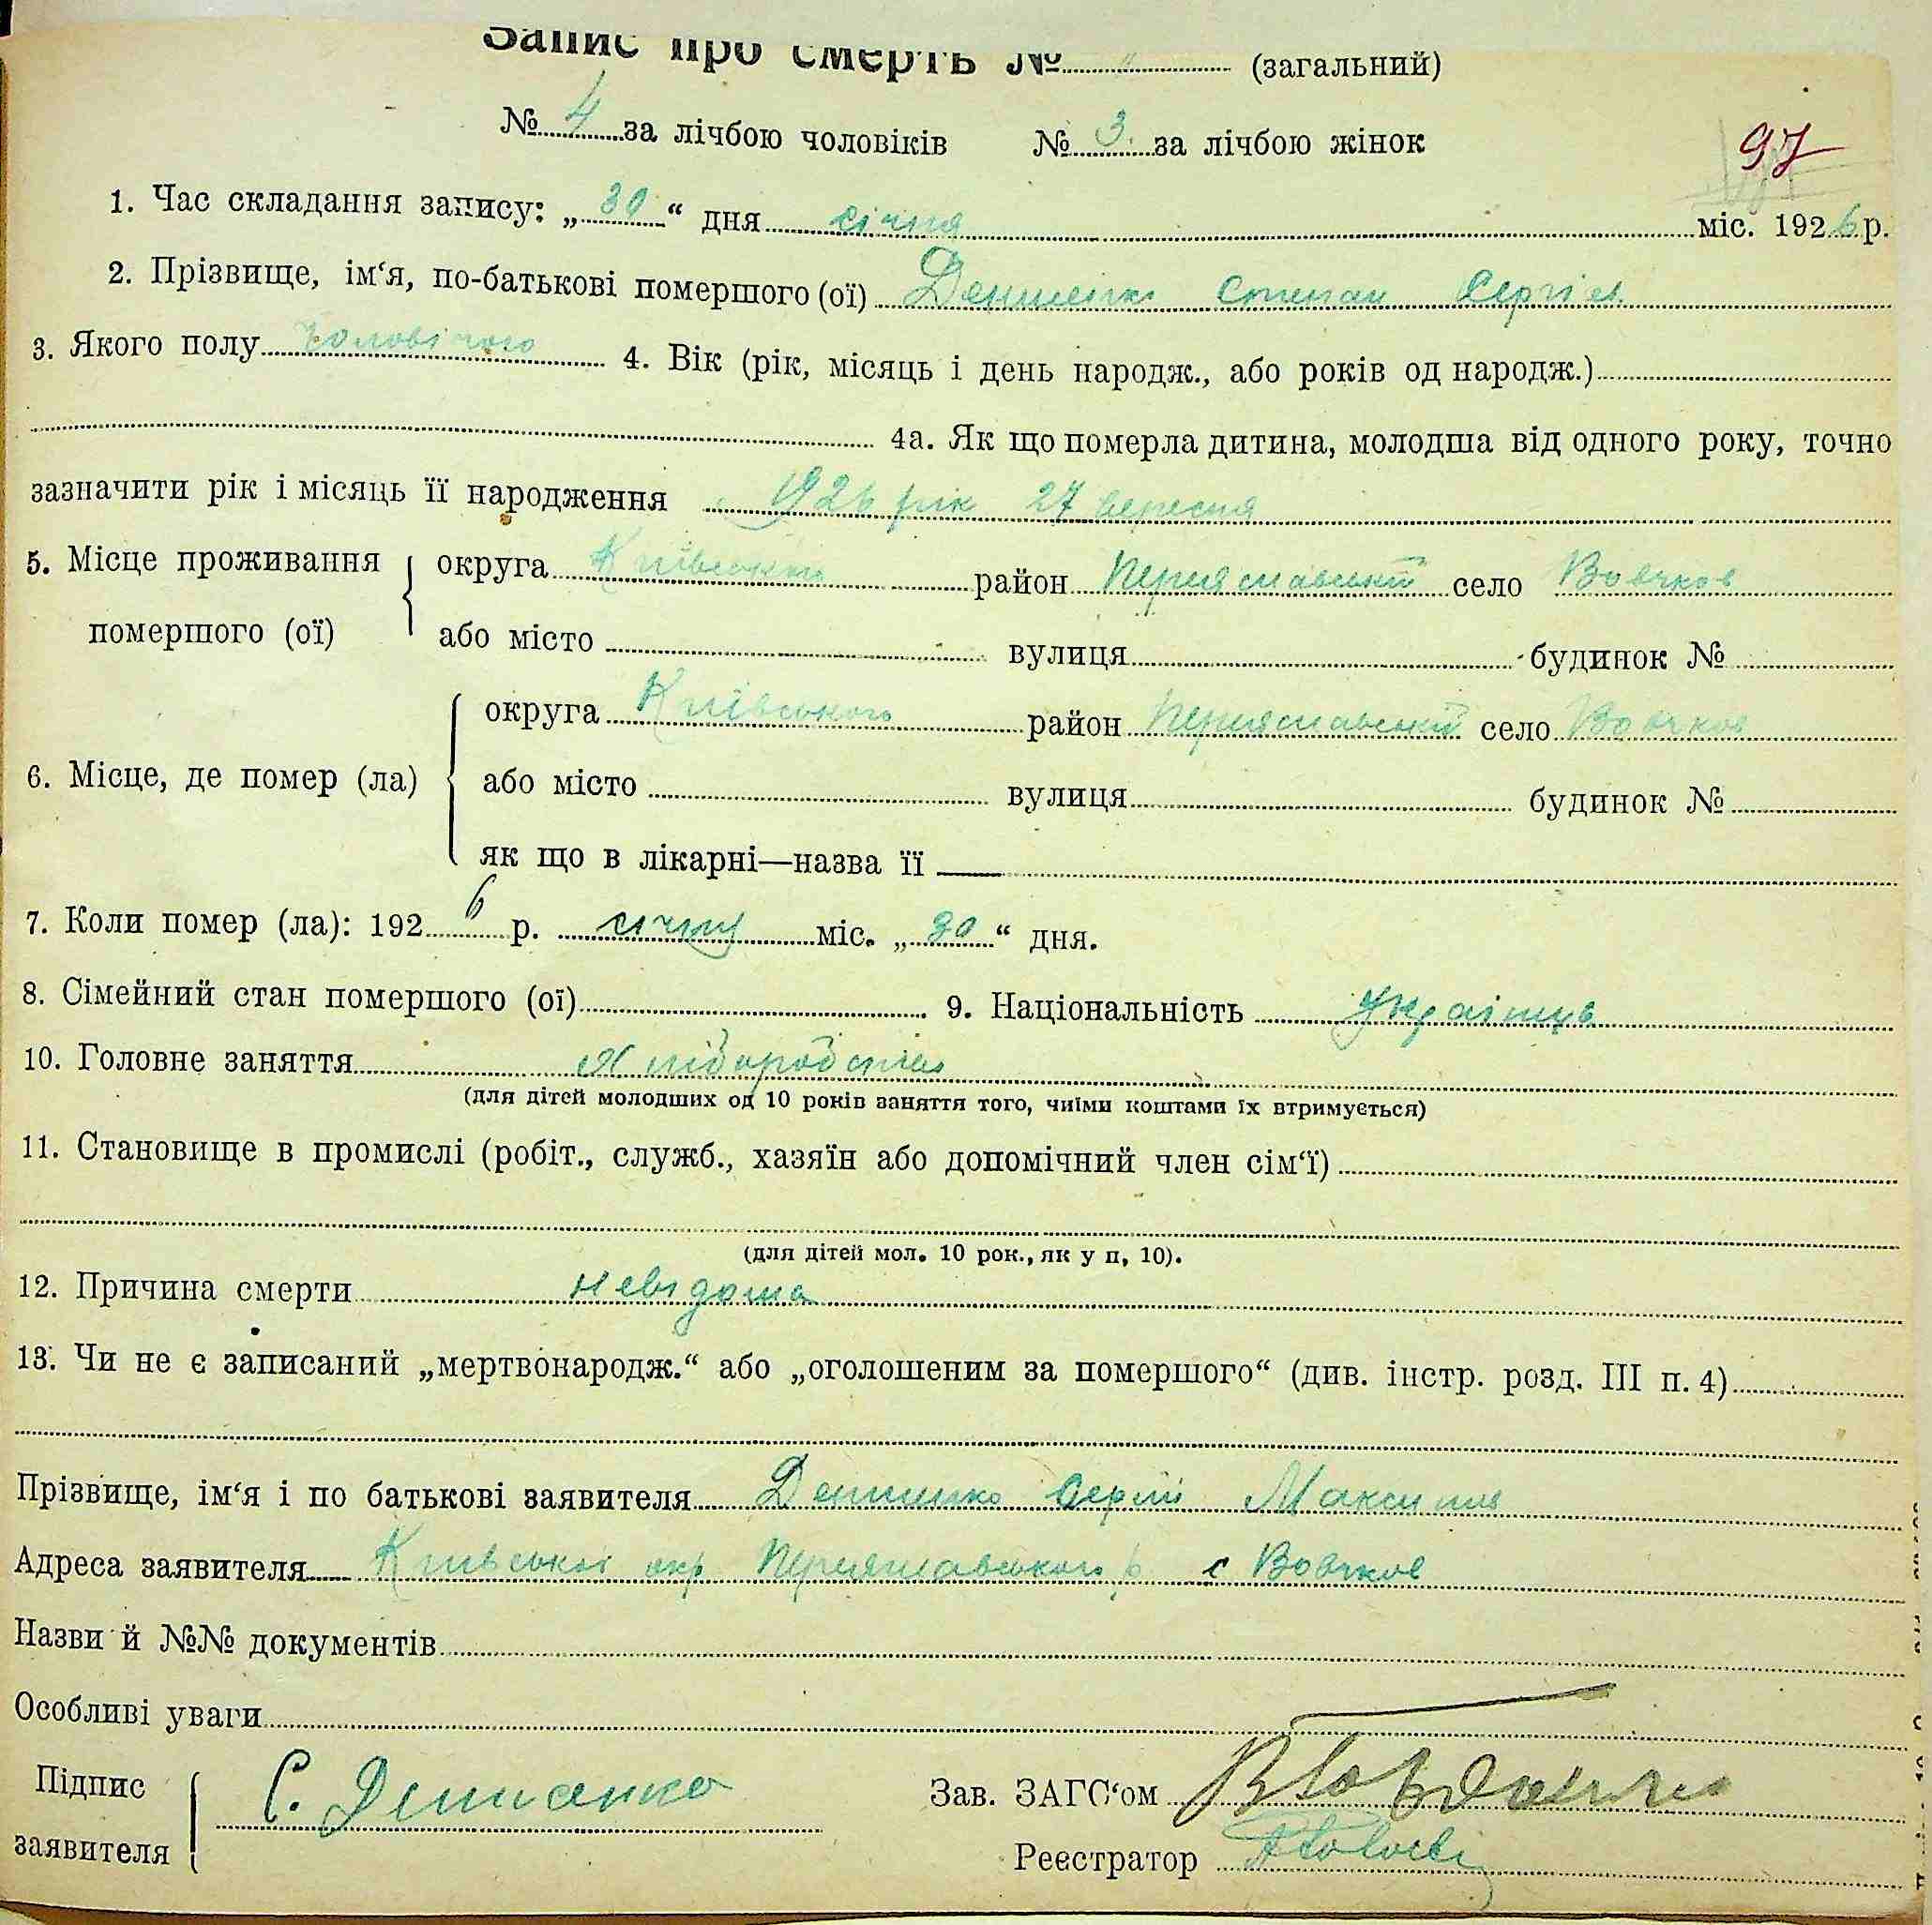 Запис про смерть № (загальний)
№ 4 за лічбою чоловіків № 3. за лічбою жінок
97
1. Час складання запису: „30“ дня січня міс. 1926 р.
2. Прізвище, ім‘я, по-батькові помершого (ої) Степан Сергієв
3. Якого полу чоловічого 4. Вік (рік, місяць і день народж., або років од народж.)
4а. Як що померла дитина, молодша від одного року, точно
зазначити рік і місяць її народження 1926 рік 27 вересня
5. Місце проживання помершого (ої) округа Київської район Переяславський село Вовчков
або місто вулиця будинок №
6. Місце, де помер (ла) округа Київського район Переяславський село Вовчков
або місто вулиця будинок №
як що в лікарні—назва її
7. Коли помер (ла): 1926 р. січня міс. „30“ дня.
8. Сімейний стан помершого (ої) 9. Національність Українців
10. Головне заняття
(для дітей молодших од 10 років заняття того, чиїми коштами їх втримується)
11. Становище в промислі (робіт., служб., хазяїн або допомічний член сім‘ї)
(для дітей мол. 10 рок., як у п, 10).
12. Причина смерти невідома
13. Чи не є записаний „мертвонародж.“ або „оголошеним за помершого“ (див. інстр. розд. III п. 4)
Прізвище, ім‘я і по батькові заявителя Сергій Максимів
Адреса заявителя Київської окр Переяславського р. с Вовчков
Назви й №№ документів
Особливі уваги
Підпис заявителя С. Зав. ЗАГС‘ом
Реєстратор